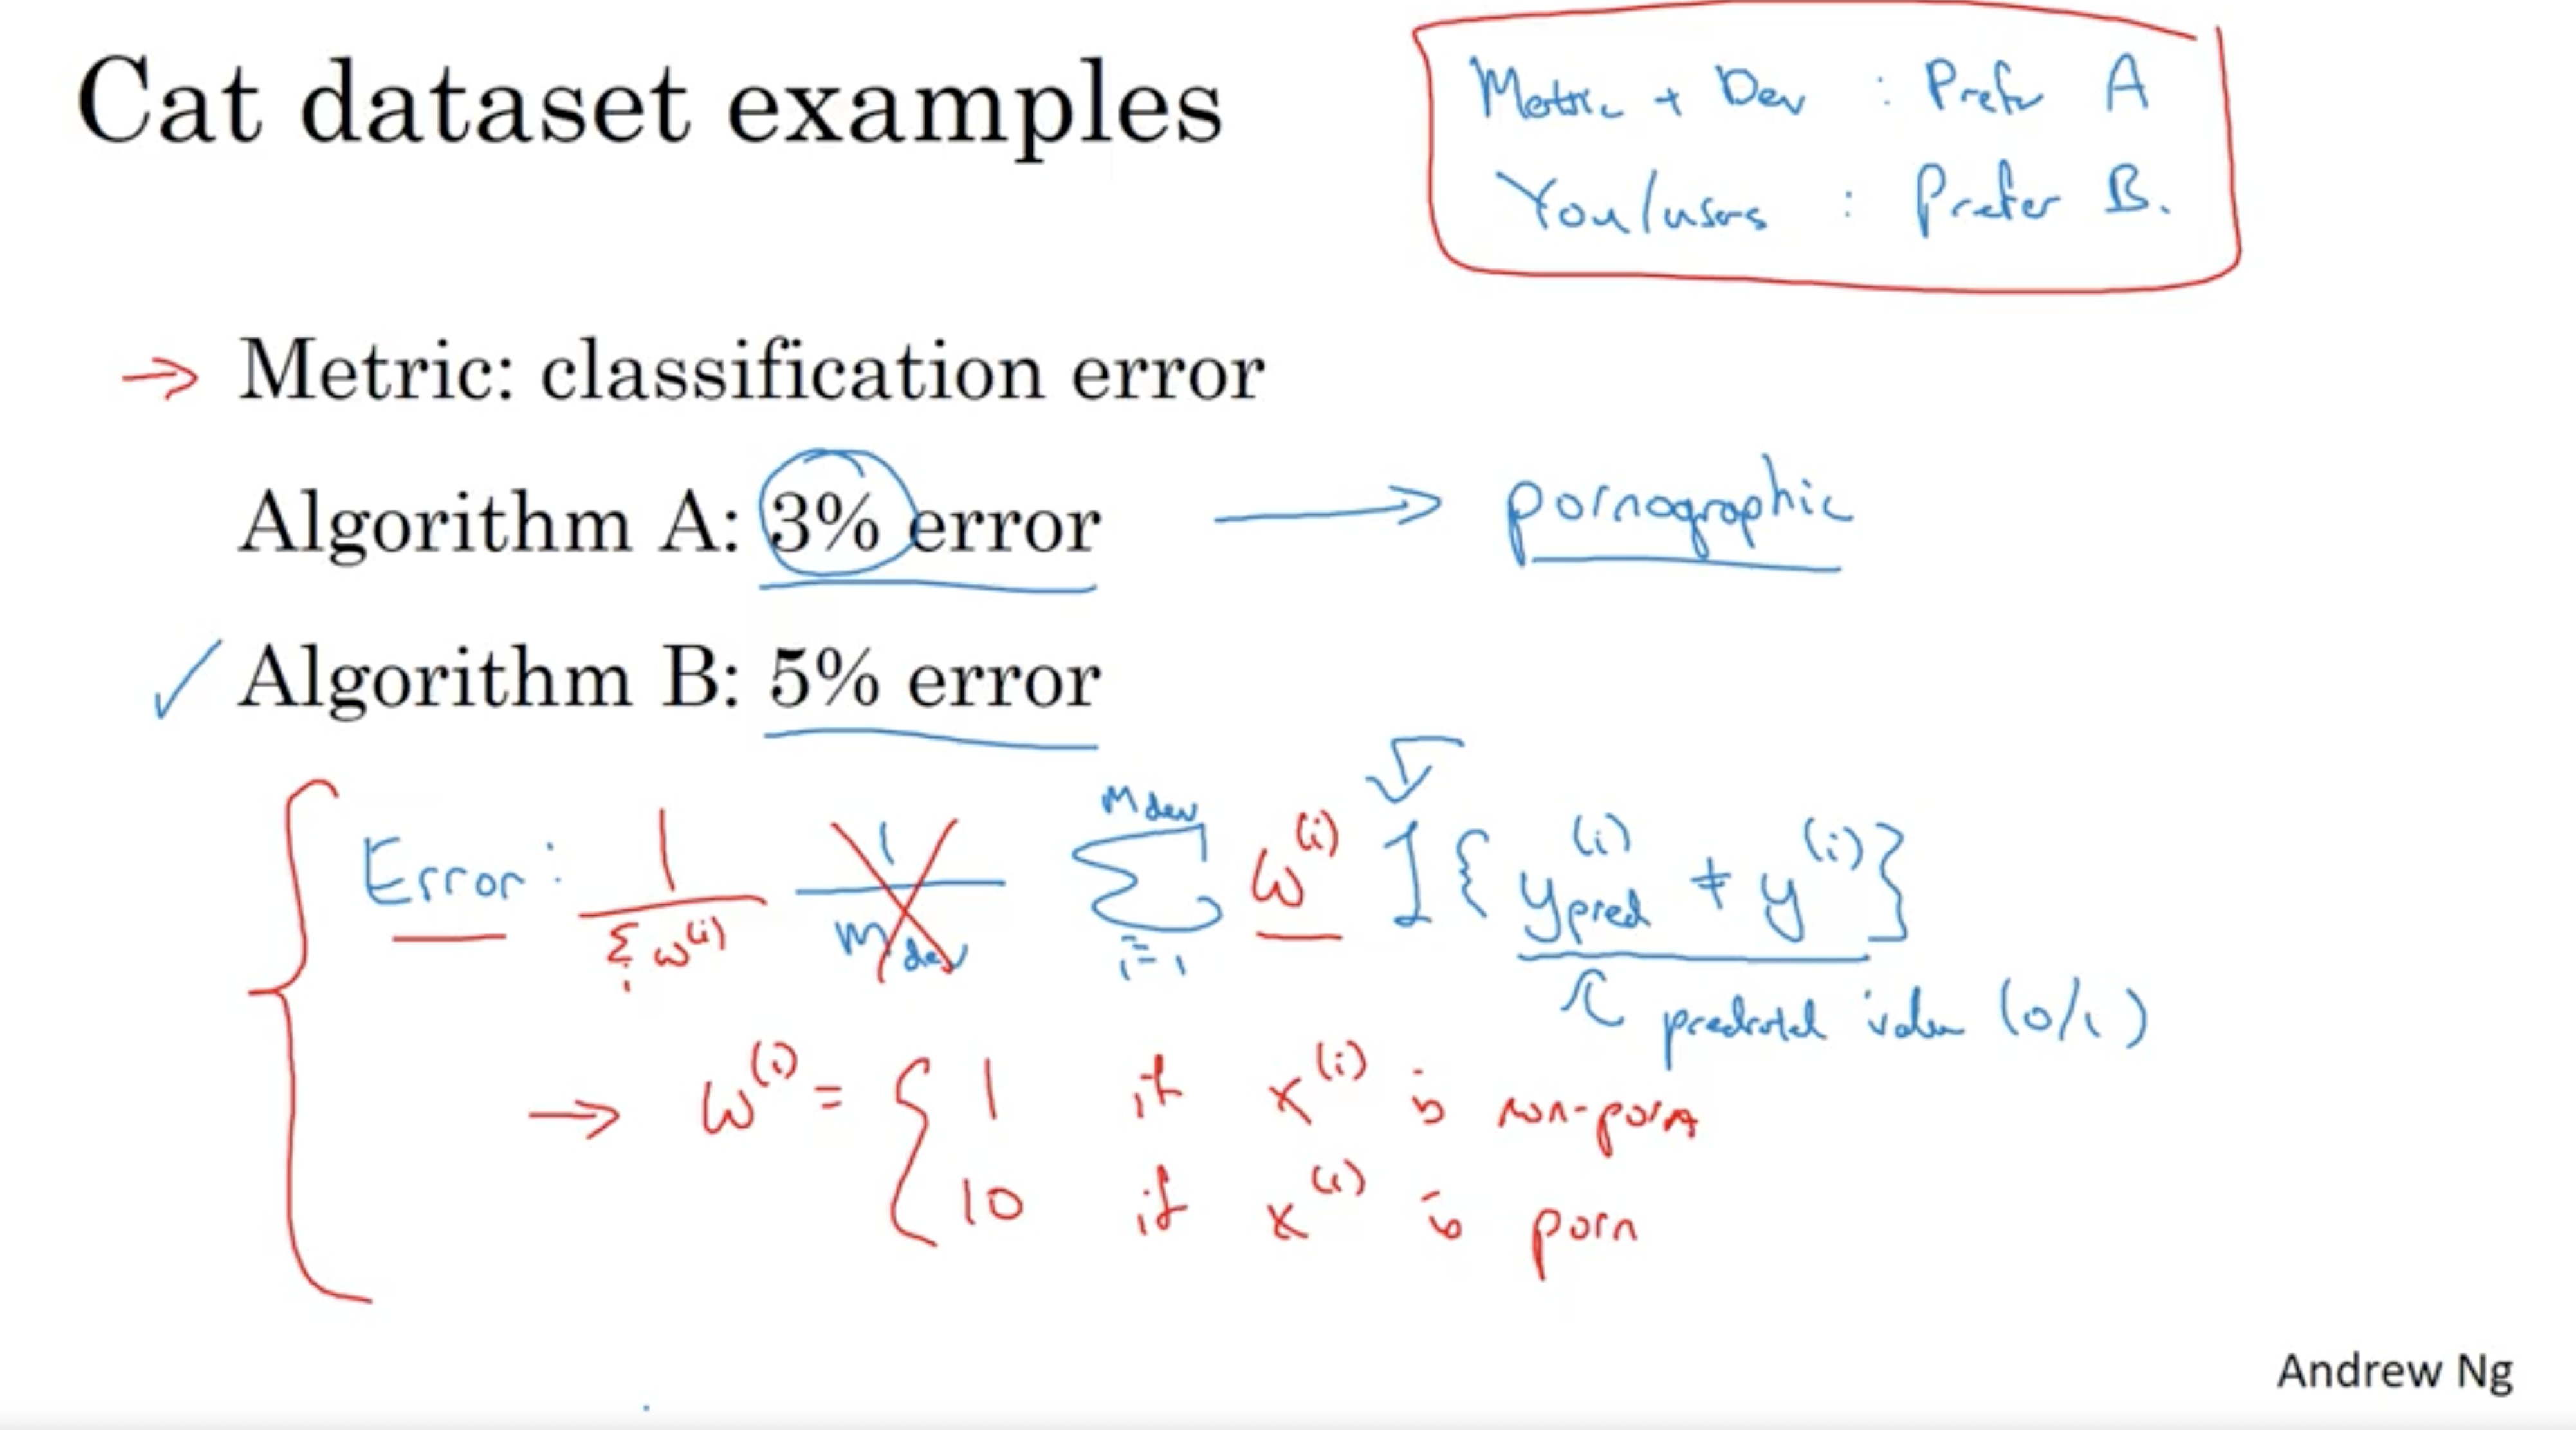 Cat dataset examples
Metric + Dev : Prefer A
You/users : Prefer B.
→ Metric: classification error
Algorithm A: 3% error → pornographic
✓ Algorithm B: 5% error
Error: 1/∑i w^(i) 1/mdev ∑i=1^mdev w^(i) I{ypred^(i) ≠ y^(i)}
predicted value (0/1)
→ w^(i) = { 1 if x^(i) is non-porn
10 if x^(i) is porn
Andrew Ng